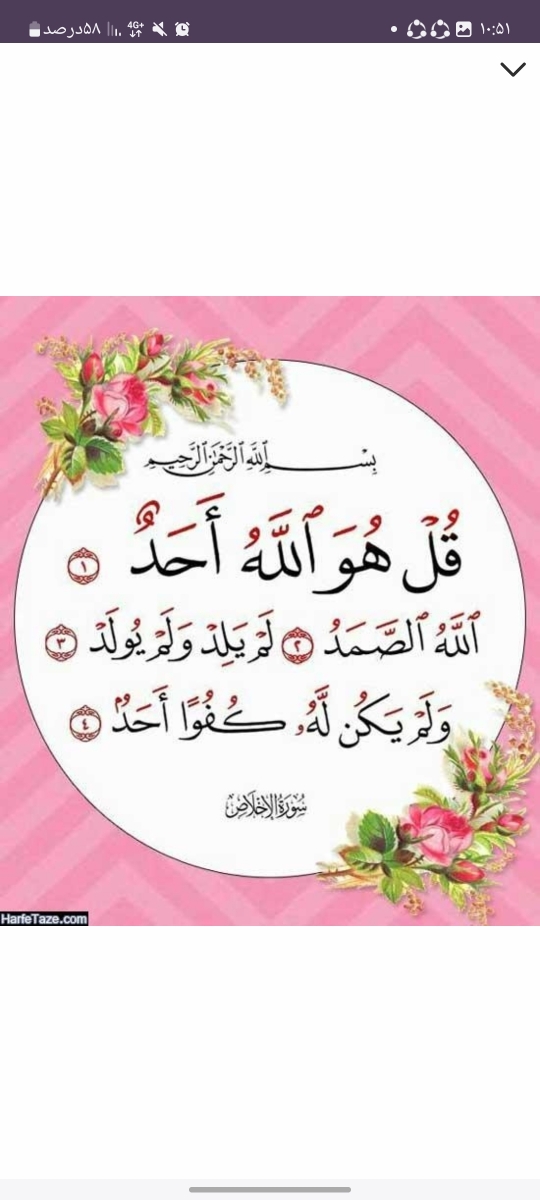 ۱۰:۵۱
4G+
۵۸درصد
بِسْمِ ٱللَّهِ ٱلرَّحْمَٰنِ ٱلرَّحِيمِ
قُلْ هُوَ ٱللَّهُ أَحَدٌ ١
ٱللَّهُ ٱلصَّمَدُ ٢ لَمْ يَلِدْ وَلَمْ يُولَدْ ٣
وَلَمْ يَكُن لَّهُۥ كُفُوًا أَحَدٌۢ ٤
سُورَةُ الإِخْلَاصِ
HarfeTaze.com